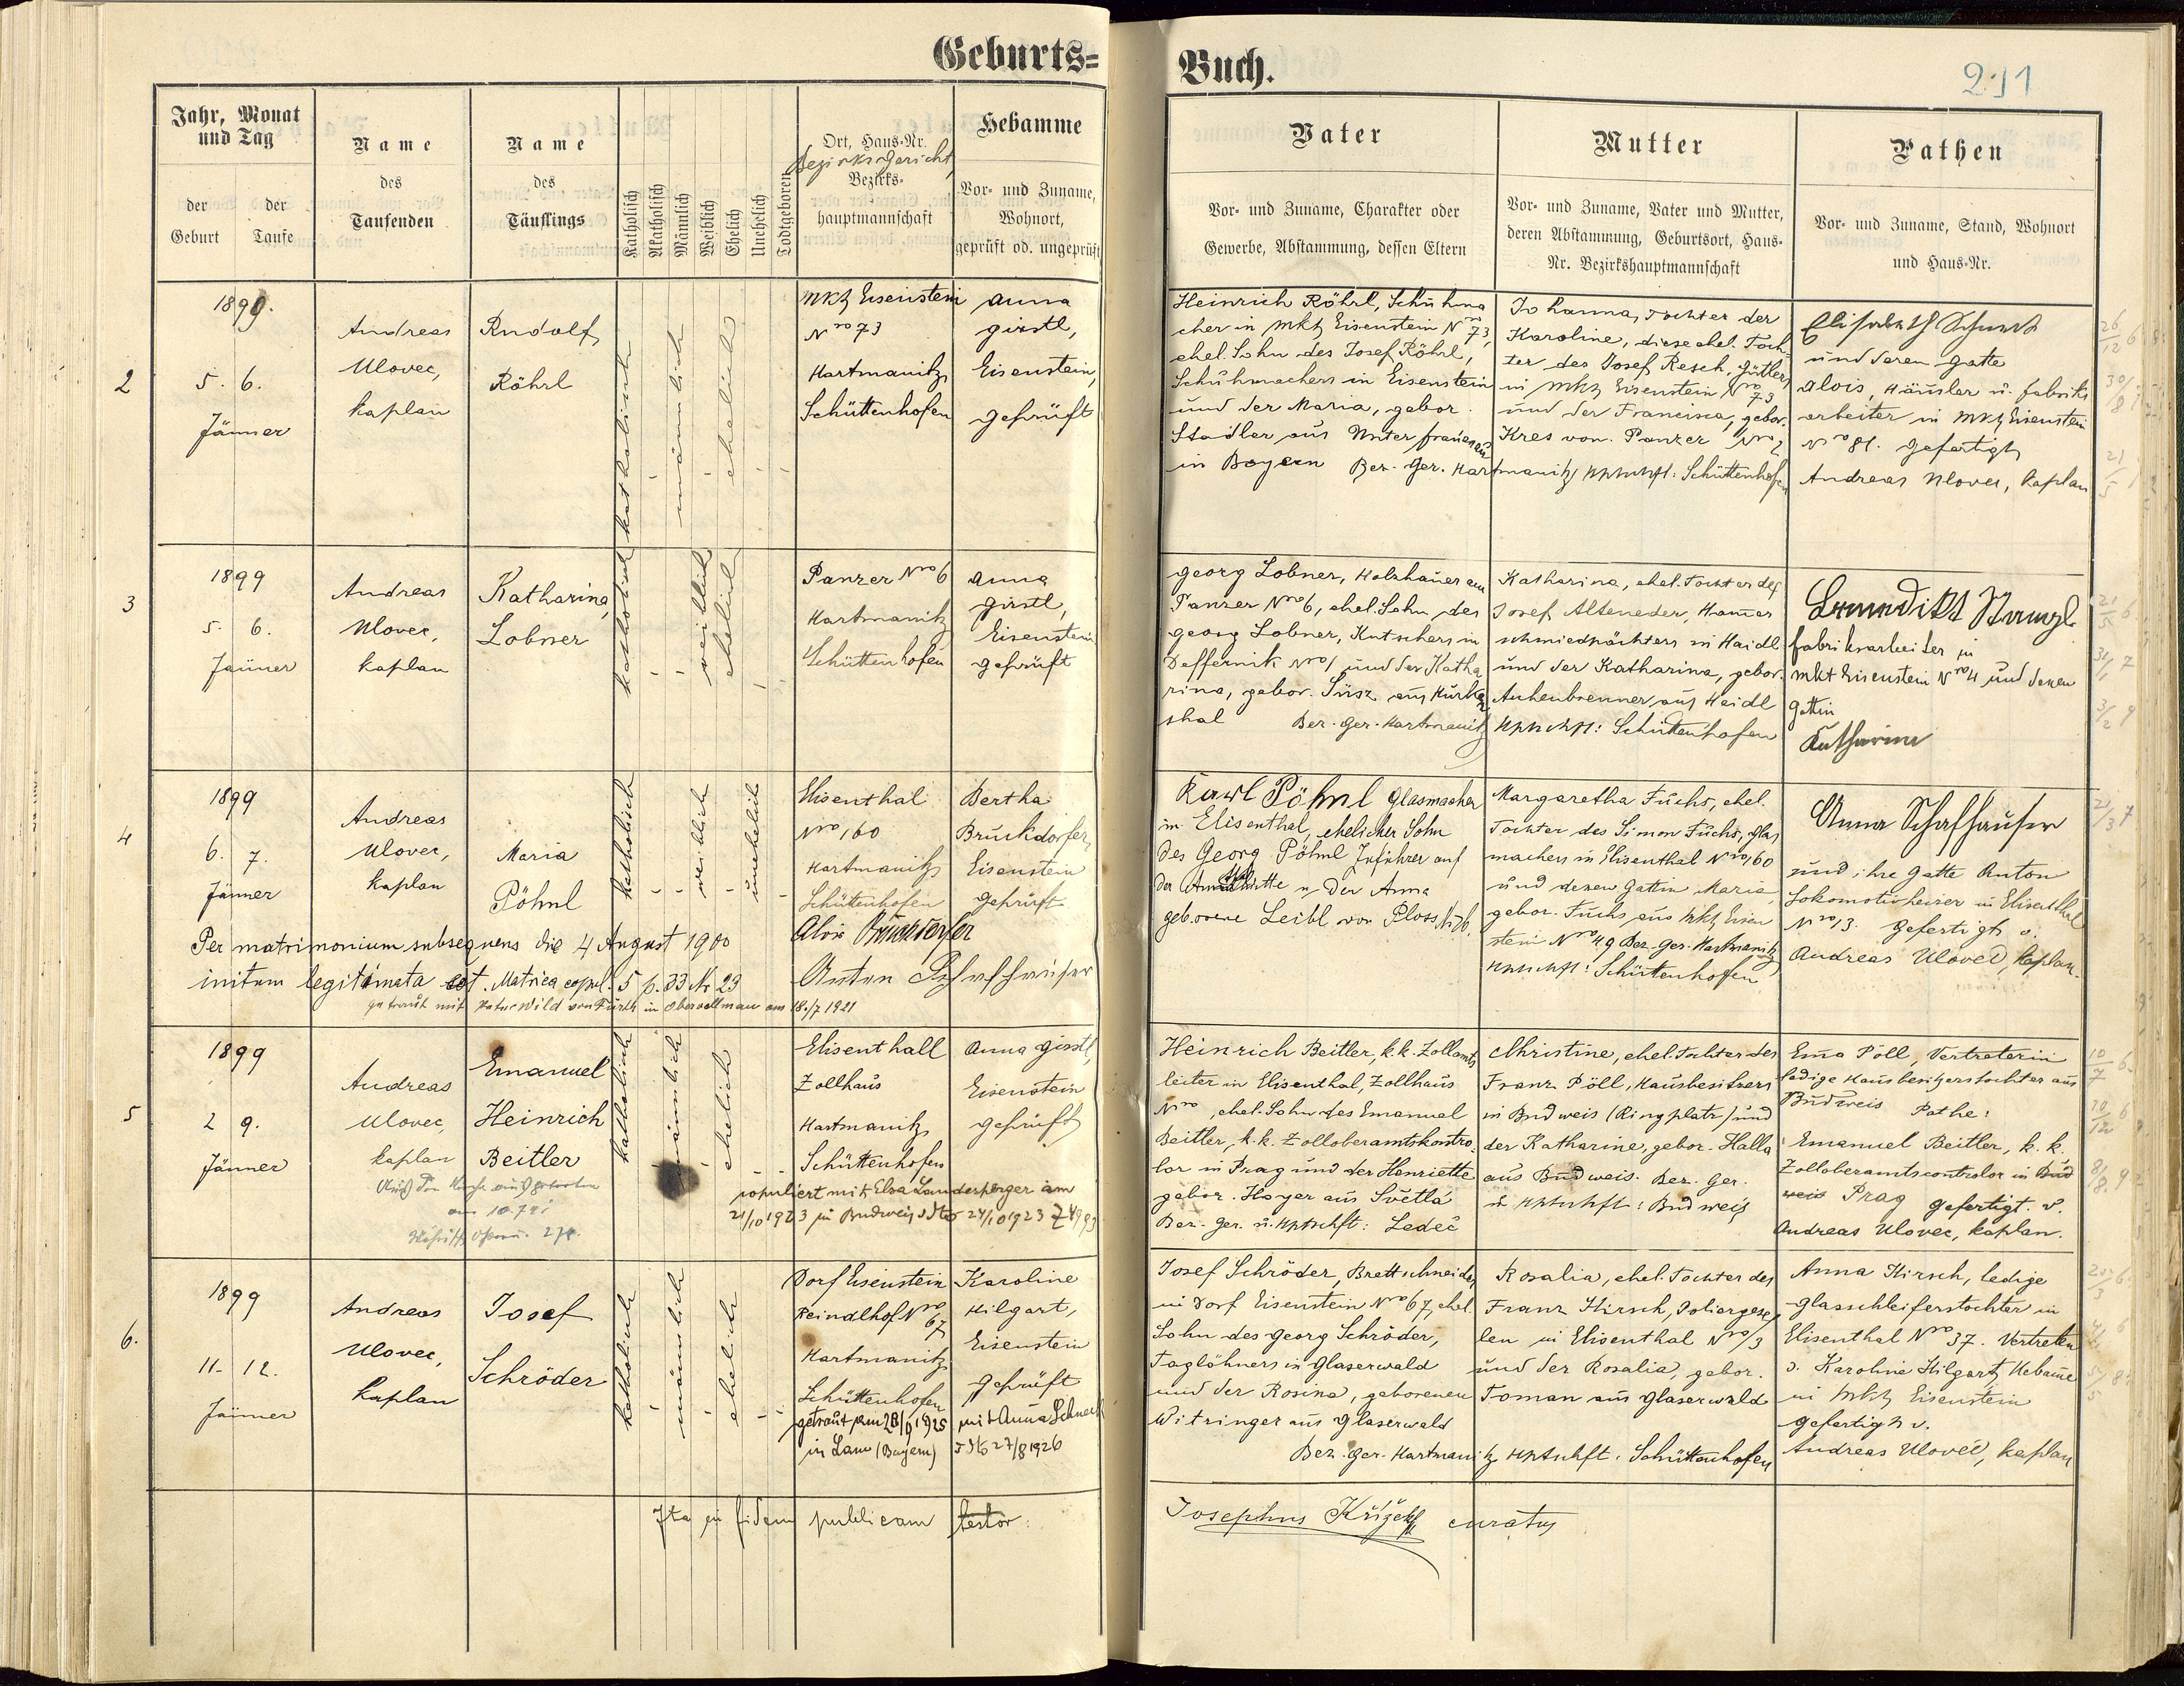 Geburts=
Buch.
211
Jahr, Monat
und Tag
der
Geburt
der
Taufe
Name
des
Taufenden
Name
des
Täuflings
Katholisch
Akatholisch
Männlich
Weiblich
Ehelich
Unehelich
Todtgeboren
Ort, Haus-Nr.
Bezirksgericht
Bezirks-
hauptmannschaft
Hebamme
Vor- und Zuname,
Wohnort,
geprüft od. ungeprüft
Vater
Vor- und Zuname, Charakter oder
Gewerbe, Abstammung, dessen Eltern
Mutter
Vor- und Zuname, Vater und Mutter,
deren Abstammung, Geburtsort, Haus-
Nr. Bezirkshauptmannschaft
Pathen
Vor- und Zuname, Stand, Wohnort
und Haus-Nr.
2
1899.
5. 6.
Jänner
Andreas
Ulovec,
kaplan
Rudolf
Röhrl
katholisch
männlich
ehelich
Mkt Eisenstein
Nro 73
Hartmanitz
Schüttenhofen
Anna
Girstl,
Eisenstein,
geprüft
Heinrich Röhrl, Schuhma
cher in Mkt Eisenstein Nro 73,
ehel. Sohn des Josef Röhrl,
Schuhmachers in Eisenstein
und der Maria, gebor.
Stadler aus Unterfrauenau
in Bayern Bez. Ger. Hartmanitz Hptschft: Schüttenhofen
Johanna, Tochter der
Karoline, diese ehel. Toch
ter des Josef Resch, Gütlers
in Mkt Eisenstein Nro 73
und der Francisca, gebor.
Kres von Panzer Nro 2
Elisabeth
und deren Gatte
Alois, Häusler u. Fabriks
arbeiter in Mkt Eisenstein
Nro 81. gefertigt
Andreas Ulovec, kaplan
3
1899
5. 6.
Jänner
Andreas
Ulovec,
kaplan
Katharina
Lobner
katholisch
weiblich
ehelich
Panzer Nro 6
Hartmanitz
Schüttenhofen
Anna
Girstl,
Eisenstein
geprüft
Georg Lobner, Holzhauer am
Panzer Nro 6, ehel. Sohn des
Georg Lobner, Kutschers in
Deffernik Nro 1 und der Katha
rina, gebor. Süsz aus Hurken
thal Bez. Ger. Hartmanitz
Katharina, ehel. Tochter des
Josef Alteneder, Hamer
schmiedpächters in Haidl
und der Katharina, gebor.
Aschenbrenner aus Haidl
Hptschft: Schüttenhofen
Benedikt Stangl
fabriksarbeiter in
mkt Eisenstein Nro 4 und dessen
Gattin
Katharina
4
1899
6. 7.
Jänner
Andreas
Ulovec,
kaplan
Maria
Pöhnl
katholisch
weiblich
unehelich
Elisenthal
Nro 160
Hartmanitz
Schüttenhofen
Bertha
Bruckdorfer,
Eisenstein
geprüft
Per matrimonium subsequens die 4 August 1900
initum legitimata est. Matrica copul. 5 p. 33 Nr 23
Alois Bruckdorfer
Anton Schafhauser
getraut mit Peter Wild von Furth in am 18./7 1921
Karl Pöhnl Glasmacher
in Elisenthal, ehelicher Sohn
des Georg Pöhnl auf
der u. der Anna
geborene Leibl von Ploss
Margaretha Fuchs, ehel.
Tochter des Simon Fuchs, Glas
machers in Elisenthal Nro 160
und dessen Gattin Maria,
gebor. Fuchs aus Mkt Eisen
stein Nro 49 Bez. Ger. Hartmanitz
Hptschft: Schüttenhofen
Anna Schafhauser
und ihre Gatte Anton
Lokomotivheizer in Elisenthal
Nro 13. gefertigt v.
Andreas Ulovec, kaplan.
5
1899
2 9.
Jänner
Andreas
Ulovec,
kaplan
Emanuel
Heinrich
Beitler
katholisch
männlich
ehelich
Elisenthall
Zollhaus
Hartmanitz
Schüttenhofen
Anna Girstl,
Eisenstein
geprüft
Aus der Kirche ausgetreten
copuliert mit Elsa Landesperger am
21/10 1923 in Budweis dto 24/10 1923
Heinrich Beitler, k.k. Zollamts
leiter in Elisenthal, Zollhaus
Nro , ehel. Sohn des Emanuel
Beitler, k.k. Zolloberamtskontro
lor in Prag und der Henriette
gebor. Hoyer aus Světlá
Bez. Ger. u. Hptschft: Ledeč
Christine, ehel. Tochter des
Franz Pöll, Hausbesitzers
in Budweis (Ringplatz) und
der Katharine, gebor. Halla
aus Budweis. Bez. Ger.
u. Hptschft: Budweis
Ema Pöll, Vertreterin
ledige Hausbesitzerstochter aus
Budweis Pathe:
Emanuel Beitler, k. k.
Zolloberamtscontrolor in Bud
weis Prag gefertigt. v.
Andreas Ulovec, kaplan.
6.
1899
11. 12.
Jänner
Andreas
Ulovec,
kaplan
Josef
Schröder
katholisch
männlich
ehelich
Dorf Eisenstein
Reindlhof Nro 67
Hartmanitz
Schüttenhofen
Karoline
Hilgart,
Eisenstein
geprüft
getraut am 28/9 1925 mit Anna
in Lam (Bayern) dto 27/8 1926
Josef Schröder, Brettschneider
in Dorf Eisenstein Nro 67, ehel.
Sohn des Georg Schröder,
Taglöhners in Glaserwald
und der Rosina, geborenen
Witzinger aus Glaserwald
Bez. Ger. Hartmanitz Hptschft: Schüttenhofen
Rosalia, ehel. Tochter des
Franz Hirsch, Poliergesel
len in Elisenthal Nro 3
und der Rosalia, gebor.
Toman aus Glaserwald
Anna Hirsch, ledige
Glasschleiferstochter in
Elisenthal Nro 37. Vertreten
v. Karoline Hilgart, Hebamme
in Mkt Eisenstein
gefertigt v.
Andreas Ulovec, kaplan
Ita in fidem publicam testor:
Josephus Křížek curatus